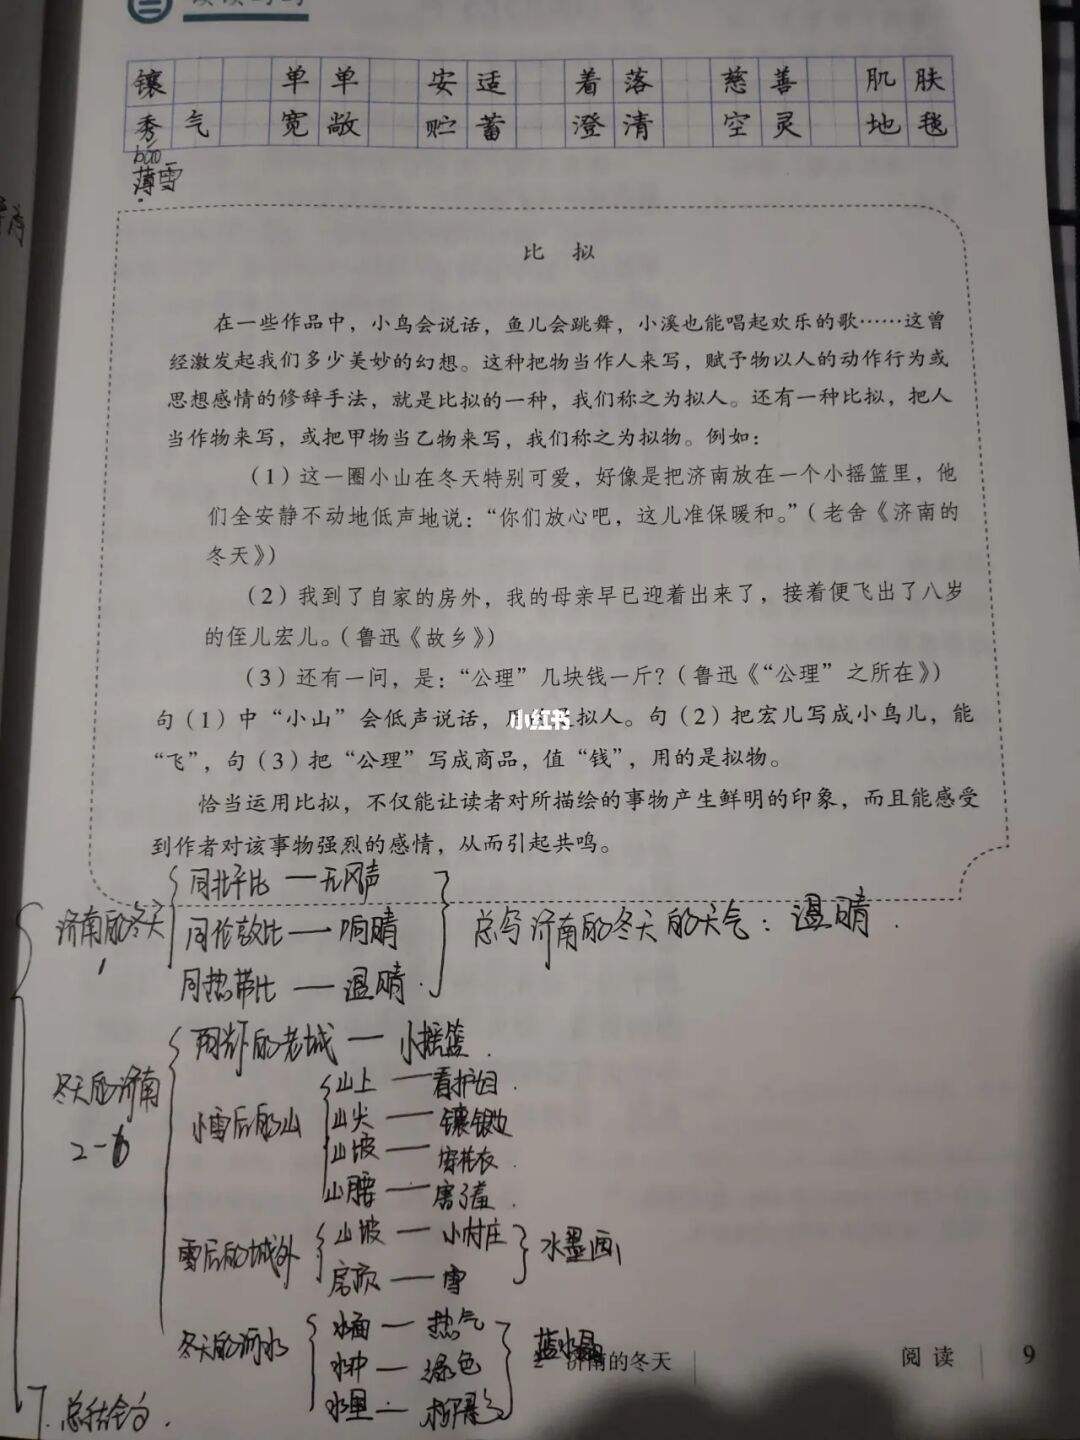 读读写写
镶 单单 安适 着落 慈善 肌肤
秀气 宽敞 贮蓄 澄清 空灵 地毯
báo
薄雪
比 拟
在一些作品中，小鸟会说话，鱼儿会跳舞，小溪也能唱起欢乐的歌……这曾
经激发起我们多少美妙的幻想。这种把物当作人来写，赋予物以人的动作行为或
思想感情的修辞手法，就是比拟的一种，我们称之为拟人。还有一种比拟，把人
当作物来写，或把甲物当乙物来写，我们称之为拟物。例如：
（1）这一圈小山在冬天特别可爱，好像是把济南放在一个小摇篮里，他
们全安静不动地低声地说：“你们放心吧，这儿准保暖和。”（老舍《济南的
冬天》）
（2）我到了自家的房外，我的母亲早已迎着出来了，接着便飞出了八岁
的侄儿宏儿。（鲁迅《故乡》）
（3）还有一问，是：“公理”几块钱一斤？（鲁迅《“公理”之所在》）
句（1）中“小山”会低声说话，拟人。句（2）把宏儿写成小鸟儿，能
小红书
“飞”，句（3）把“公理”写成商品，值“钱”，用的是拟物。
恰当运用比拟，不仅能让读者对所描绘的事物产生鲜明的印象，而且能感受
到作者对该事物强烈的感情，从而引起共鸣。
济南的冬天
1
同北平比 — 无风声
同伦敦比 — 响晴
同热带比 — 温晴
总写济南的冬天的天气：温晴.
冬天的济南
2-6
阳光下的老城 — 小摇篮.
小雪后的山
山上 — 看护妇.
山尖 — 镶银边
山坡 — 穿花衣.
山腰 — 害了羞.
雪后的城外
山坡 — 小村庄
房顶 — 雪
水墨画
冬天的济水
水面 — 热气
水中 — 绿色
水里 — 柳影
蓝水晶
7. 总结全文.
2 济南的冬天 阅读 9